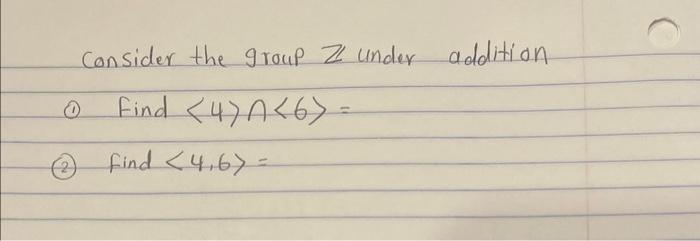 Consider the group ℤ under addition
① Find <4> ∩ <6> =
② find <4,6> =